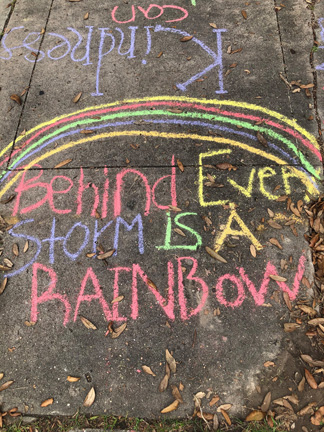 Kindness
Behind Ever
Storm IS A
RAINBOW